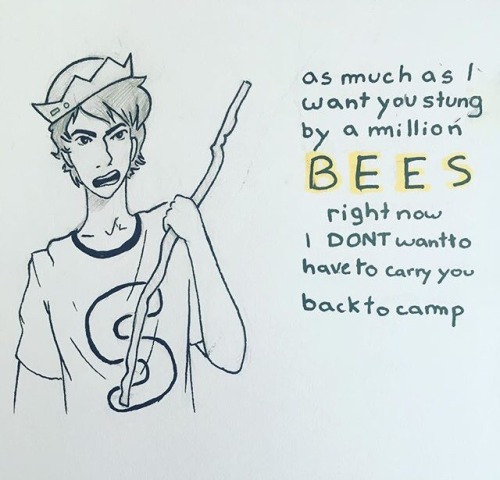 as much as I
want you stung
by a million
BEES
right now
I DONT want to
have to carry you
back to camp
S